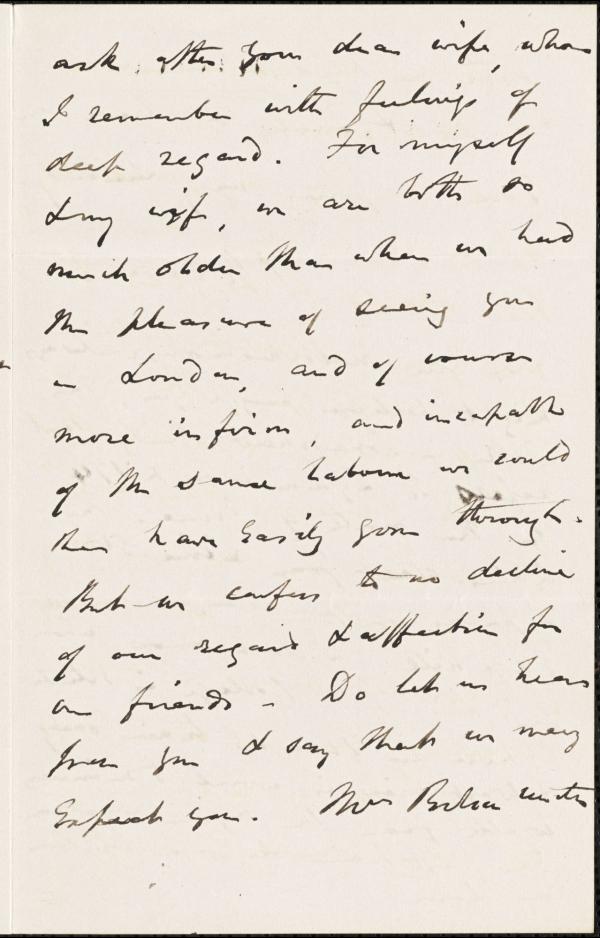 ask after your dear wife, whom
I remember with feelings of
deep regard. For myself
& my wife, we are both so
much older than when we had
the pleasure of seeing you
in London, and of course
more infirm, and incapable
of the same labour we could
then have easily gone through.
But we confess to no decline
of our regard & affection for
our friends - Do let us hear
from you & say that we may
expect you. Mrs unites